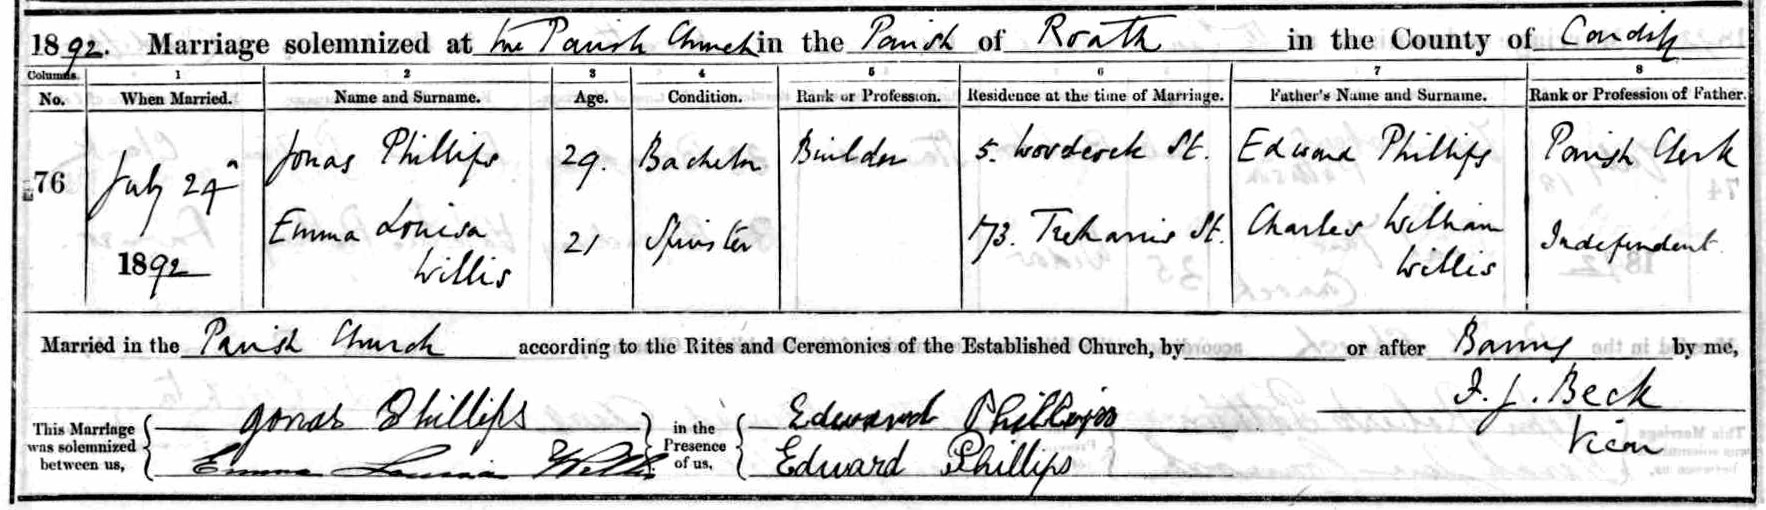 1892. Marriage solemnized at the Parish Church in the Parish of Roath in the County of Cardiff
Columns. 1 2 3 4 5 6 7 8
No. When Married. Name and Surname. Age. Condition. Rank or Profession. Residence at the time of Marriage. Father's Name and Surname. Rank or Profession of Father.
76 July 24th Jonas Phillips 29. Bachelor Builder 5. Woodcock St. Edward Phillips Parish Clerk
1892 Emma Louisa 21 Spinster 173. Treharris St. Charles William Independent
Willis Willis
Married in the Parish Church according to the Rites and Ceremonies of the Established Church, by or after Banns by me,
F. J. Beck
Vicar
This Marriage was solemnized between us, Jonas Phillips in the Presence of us, Edward Phillips
Emma Louisa Willis Edward Phillips